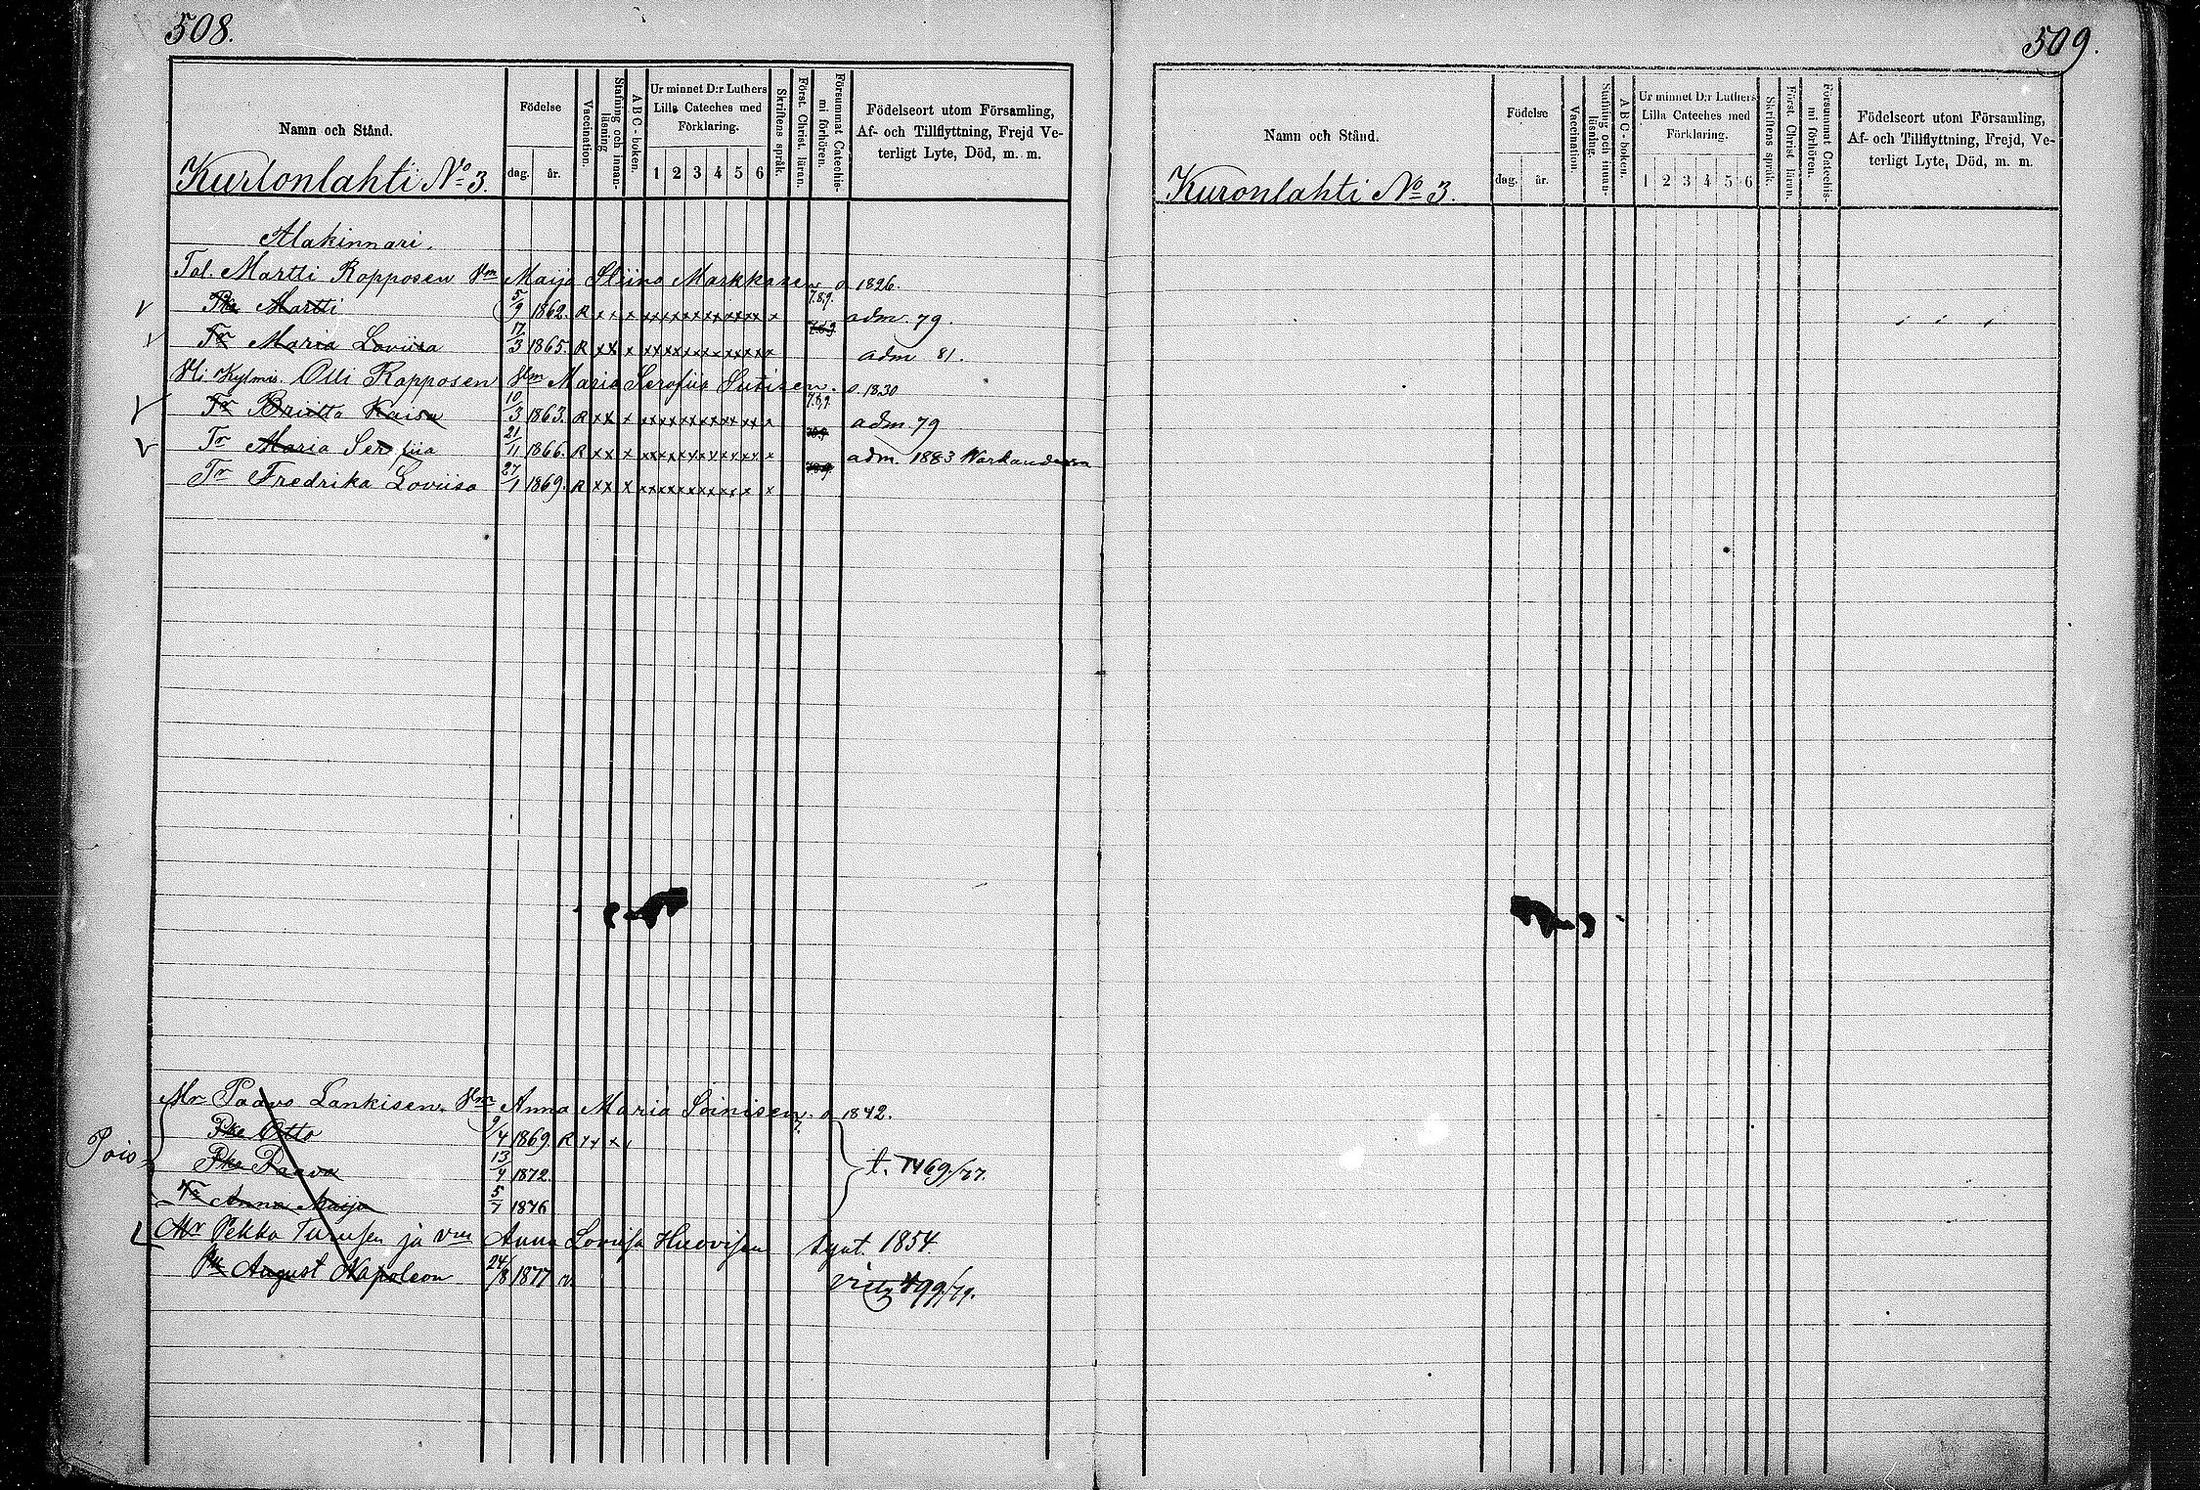 508.
Namn och Stånd.
Födelse
dag. år.
Vaccination.
Stafning och innan-läsning
ABC-boken.
Ur minnet D:r Luthers Lilla Cateches med Förklaring.
1 2 3 4 5 6
Skriftens språk.
Först. Christ. läran.
Försummat Catechis-mi förhören.
Födelseort utom Församling, Af- och Tillflyttning, Frejd Ve-terligt Lyte, Död, m. m.
Kurtonlahti No 3.
Alakinnari.
Tal. Martti Ropponen Vm Maija Stiina Markkanen o 1826.
Pka Martti 5/9 1862. R x x x xxxxxxxxxxxx x 7.8.9. adm. 79.
Tr Maria Loviisa 17/3 1865. R x x x xxxxxxxxxxxx x adm 81.
Kylmis. Olli Ropponen Vm Maria Serofiia o. 1830
Tr Briitta Kaisa 10/3 1863. R x x x xxxxxxxxxxxx x adm. 79
Tr Maria Serofiia 21/11 1866. R x x x xxxxxxxxxxxx x adm. 1883
Tr Fredrika Loviisa 27/1 1869. R x x x xxxxxxxxxxx x
Mr Paavo Lankisen. Vm Anna Maria Soinisen. o 1842.
Pois
Pka Otto 9/4 1869. R x x x x
Pka Paavo 13/4 1872. t. 1469/77.
Tr Anna Maija 5/7 1876
Mr Pekka Turusen ja vm Anna Lovisa Huovisen synt. 1854.
Pk August Napoleon 24/8 1877 v. 499/79.
509.
Namn och Stånd.
Födelse
dag. år.
Vaccination.
Stafning och innan-läsning.
ABC-boken.
Ur minnet D:r Luthers Lilla Cateches med Förklaring.
1 2 3 4 5 6
Skriftens språk.
Först. Christ läran.
Försummat Catechis-mi förhören.
Födelseort utom Församling, Af- och Tillflyttning, Frejd, Ve-terligt Lyte, Död, m. m.
Kuronlahti No 3.